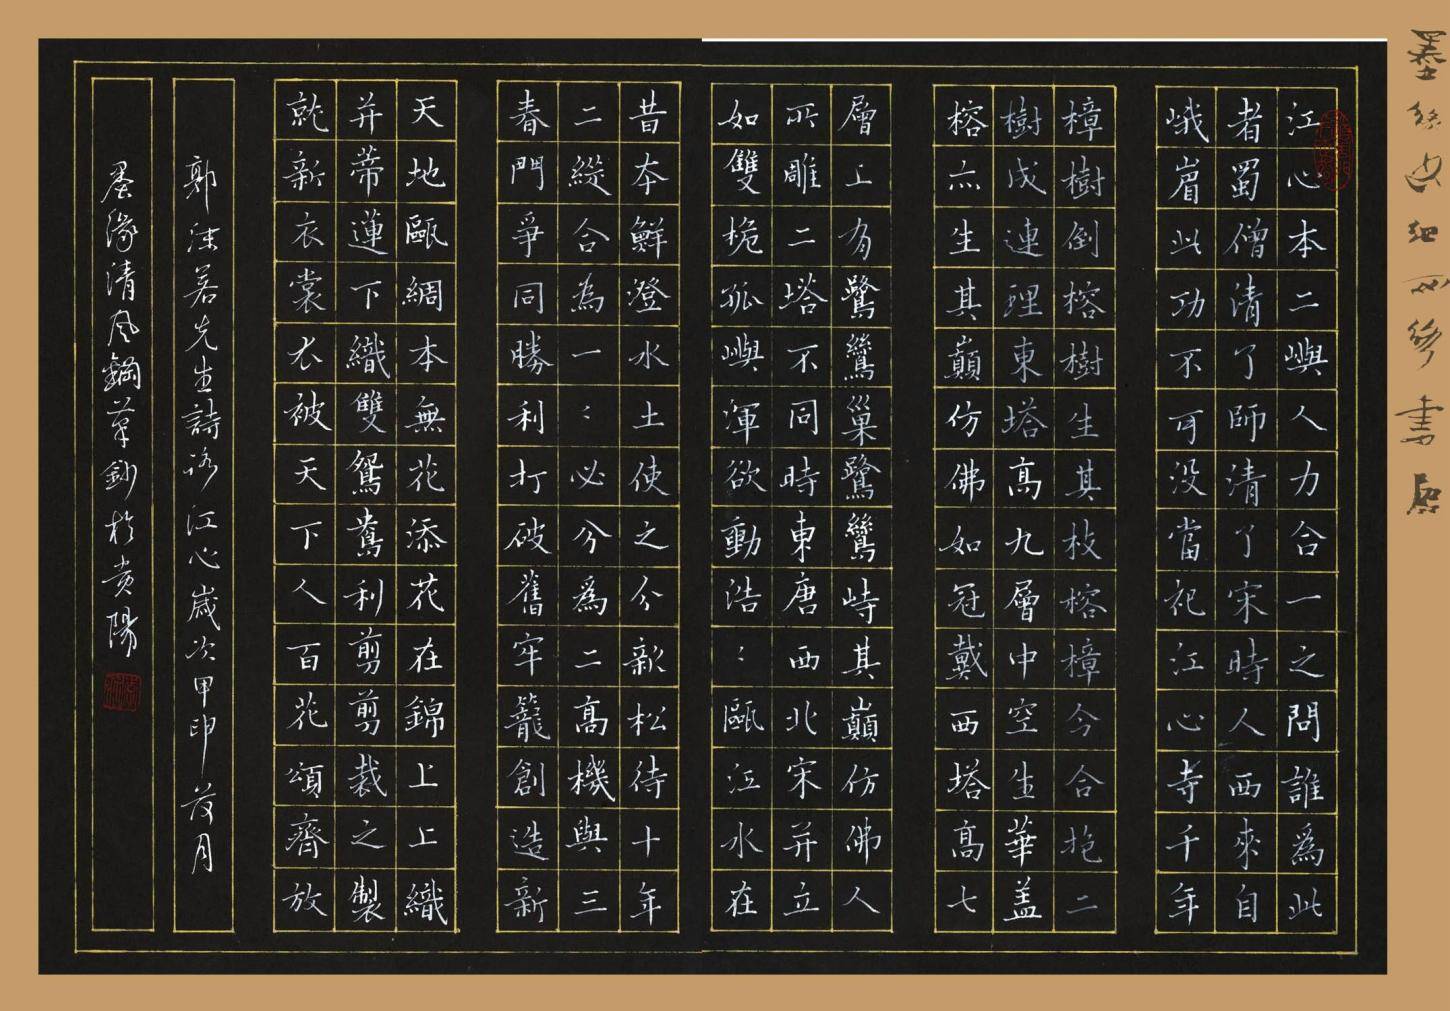 江心本二嶼人力合一之問誰爲此
者蜀僧清了師清了宋時人西來自
峨眉此功不可没當祀江心寺千年
樟樹倒榕樹生其枝榕樟今合抱二
樹成連理東塔高九層中空生華盖
榕亦生其巔仿佛如冠戴西塔高七
層上有鷺鷥巢鷺鷥峙其巔仿佛人
所雕二塔不同時東唐西北宋并立
如雙桅孤嶼渾欲動浩〻甌江水在
昔本鮮澄水土使之分新松待十年
二縱合為一〻必分爲二高機與三
春門爭同勝利打破舊牢籠創造新
天地甌綢本無花添花在錦上上織
并蒂蓮下織雙鴛鴦利剪剪裁之製
就新衣裳衣被天下人百花頌齊放
郭沫若先生詩詠江心歲次甲申月
墨緣清風鋼筆鈔於貴陽